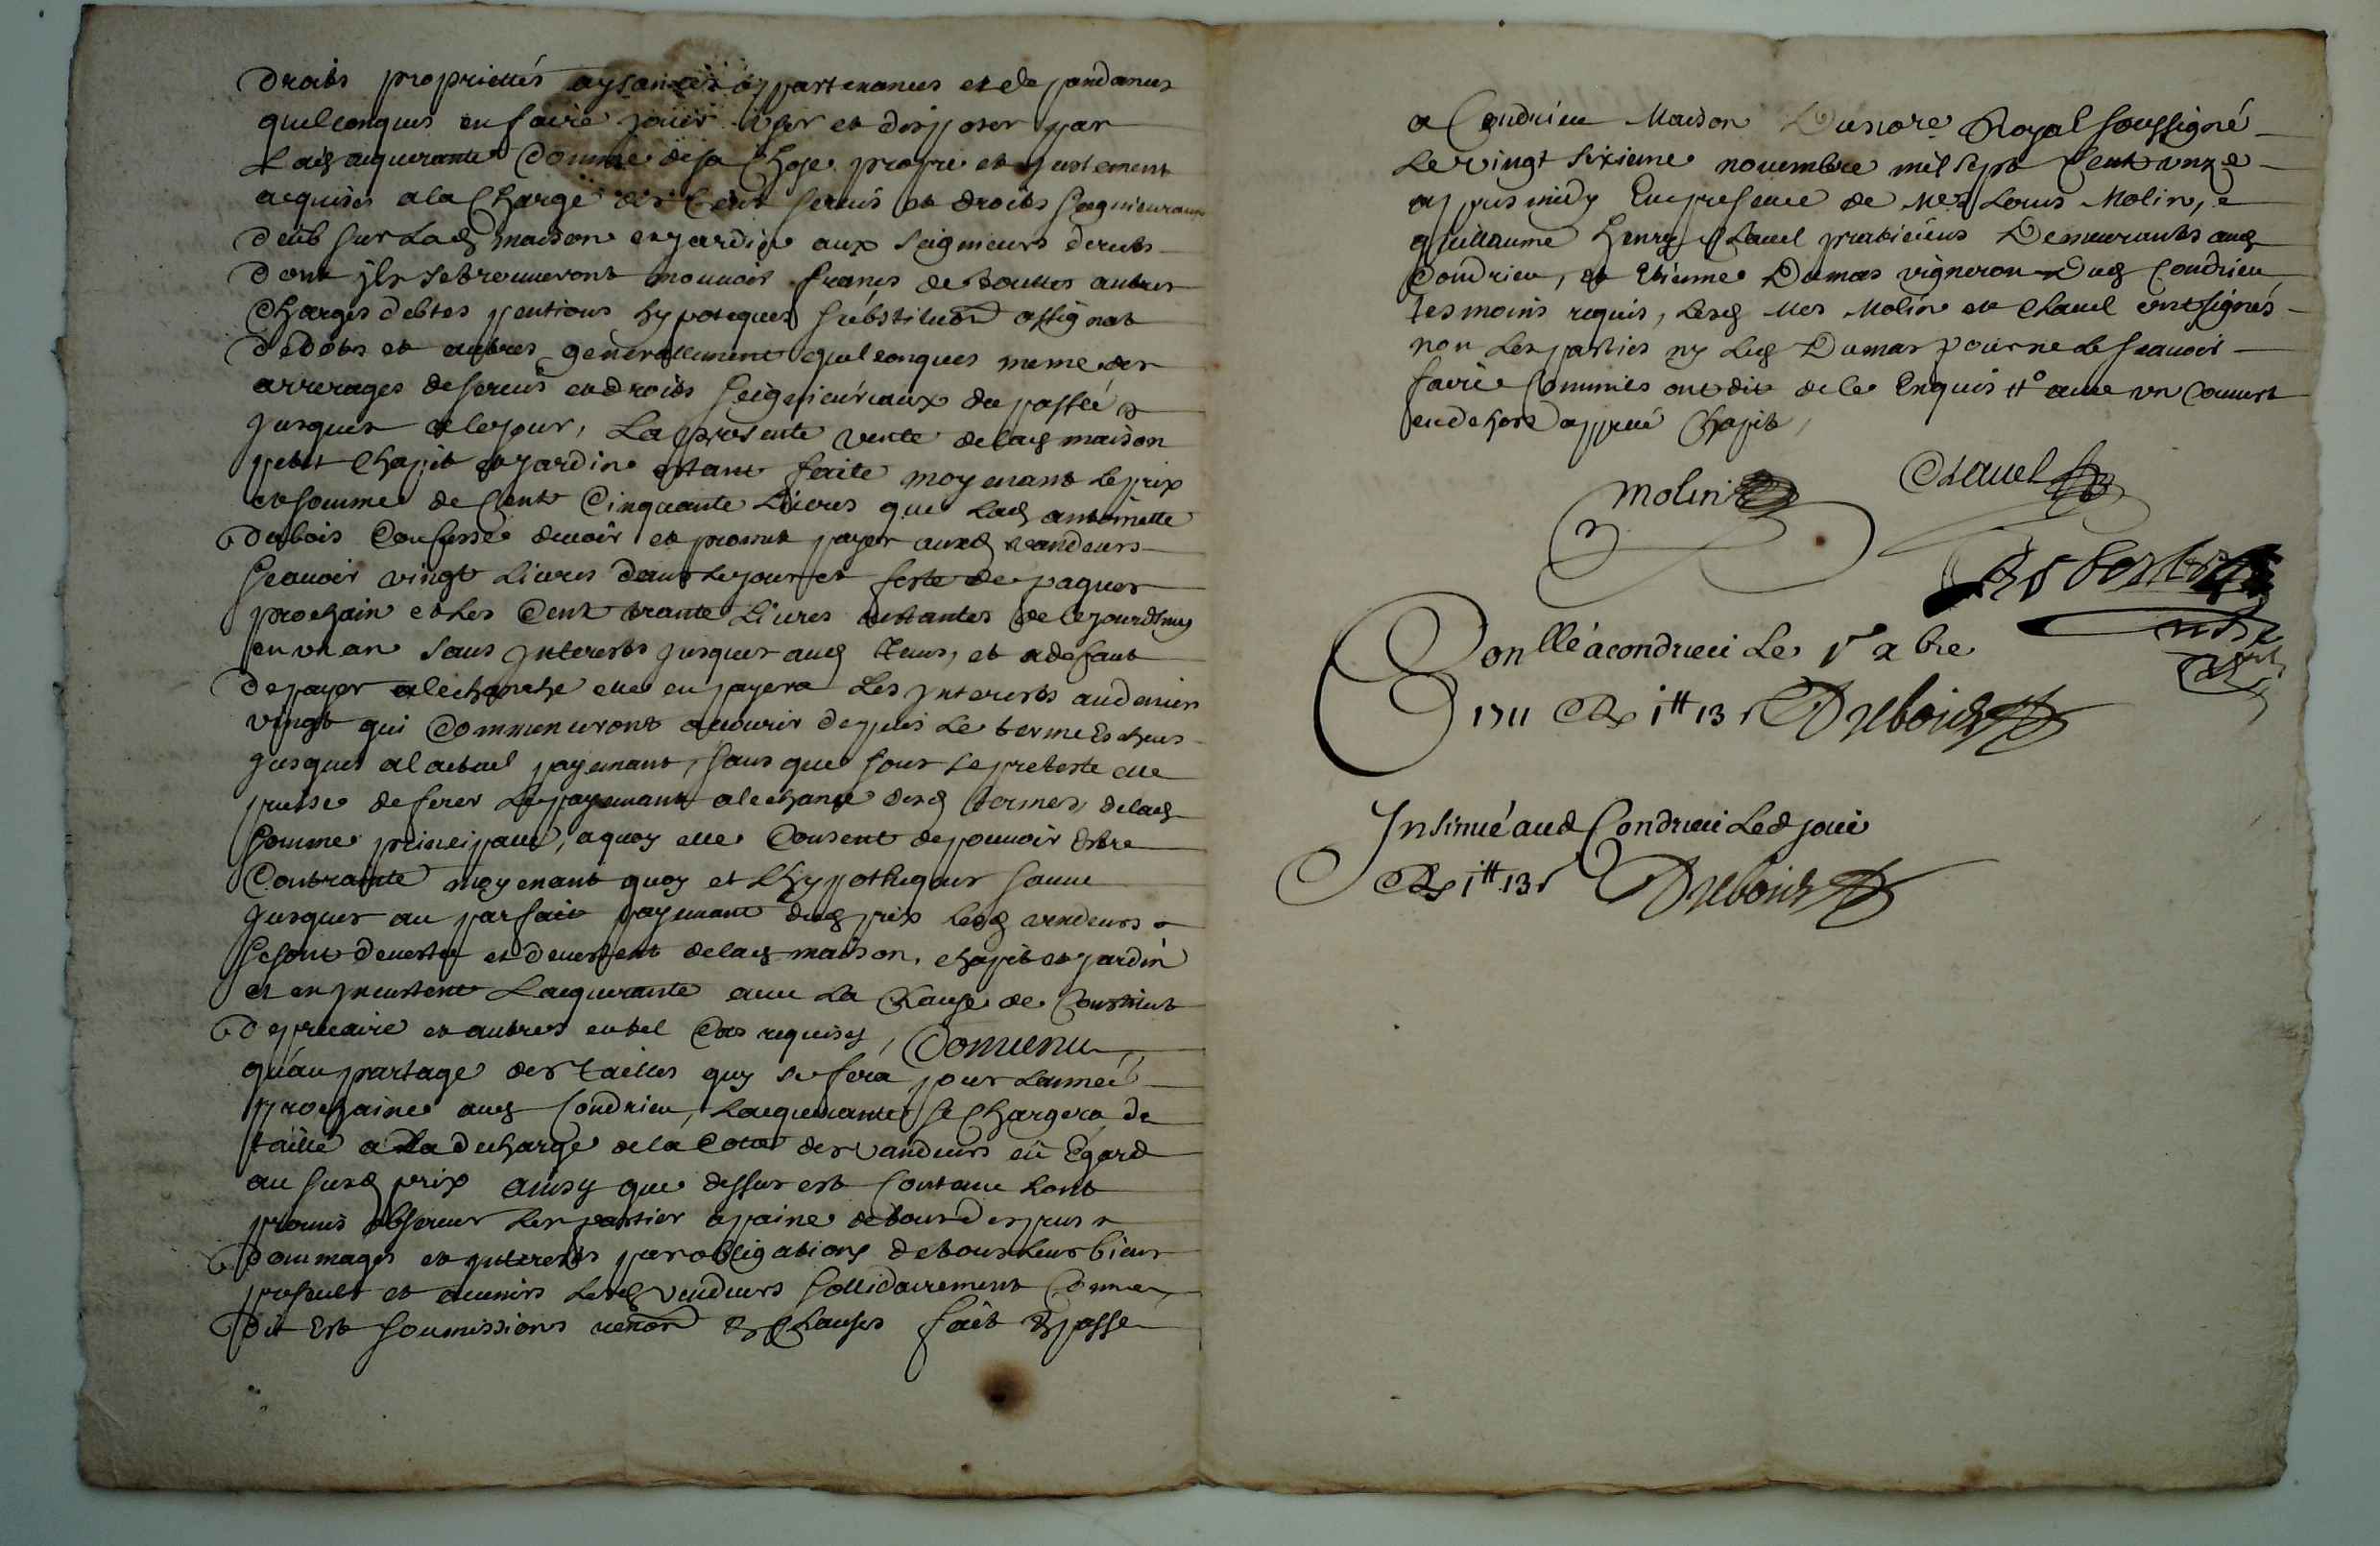 droits proprietés aysances appartenances et depandances
quelconques en faire jouir user et disposer par
Lad acquerante Comme de sa Chose propre et justement
acquise a la Charge des Cens servis et droits seigneuriaux
deub sur Lad maison et jardin aux seigneurs directs
dont ils se trouveront mouvoir francs de touttes autres
Charges debtes pentions hypoteques substituon assignat
de dots et autres generallement quelconques meme des
arrerages de servis et droits seigneuriaux du passé
jusques a Ce jour, La presente vente de lad maison
petit Chapit et jardin estant faite moyenant Le prix
et somme de Cent Cinquante Livres que Lad antoinette
dubois Confesse devoir et promet payer auxd vandeurs
scavoir vingt Livres dans Le jour et feste de paques
prochain et Les Cent trante Livres restantes de Cejourdhuy
en un an sans jnterests jusques aud tems, et a defaut
de payer a lechanche elle en payera Les jnterests au denier
vingt qui Commenceront a courir depuis Le terme Escheus
jusques a lactuel payemant, sans que sous Ce pretexte elle
puisse deferer Le payemant a lechance desd termes, de lad
somme principalle, a quoy elle Consent de pouvoir Estre
Contrainte moyenant quoy et Lhypotheque sauve
jusques au parfait payemant dud prix Lesd vendeurs
se sont devestu et devestent de lad maison, chapit et jardin
et en jnvestent Lacquerante avec La Clause de Constitut
de precaire et autres en tel Cas requises, Convenu
qu'au partage des tailles quy se fera pour Lannée
prochaine aud Condrieu, Lacquerante se Chargera de
taille a La decharge de la Cotte des vandeurs eü Egard
au susd prix ainsy que dessus est Contenu Lont
promis observer Les parties a paine de tous despans
dommages et jnterests par obligations de tous Leurs biens
presents et avenirs Lesd vendeurs sollidairement Comme
dit Est soumissions renon & Clauses fait & passé
a Condrieu Maison Du nore Royal soussigné
Le vingt sixieme novembre mil sept Cent unze
apres midy En presence de Mes Louis Molin, &
guillaume henry Chavel praticiens Demeurants aud
Condrieu, et Etienne Dumas vigneron Dud Condrieu
tesmoins requis, Lesd Mes Molin et Chavel ont signés
non Les parties ny Led Dumas pour ne Le scavoir
faire Comme ont dit de Ce Enquis avec un Couvert
en dehors appelé Chapit,
Molin Chavel
Conllé a condrieu Le 1r xbre
1711 R 1tt 13 s Dubois
Insinué aud Condrieu Led jour
R 1tt 13 s Dubois